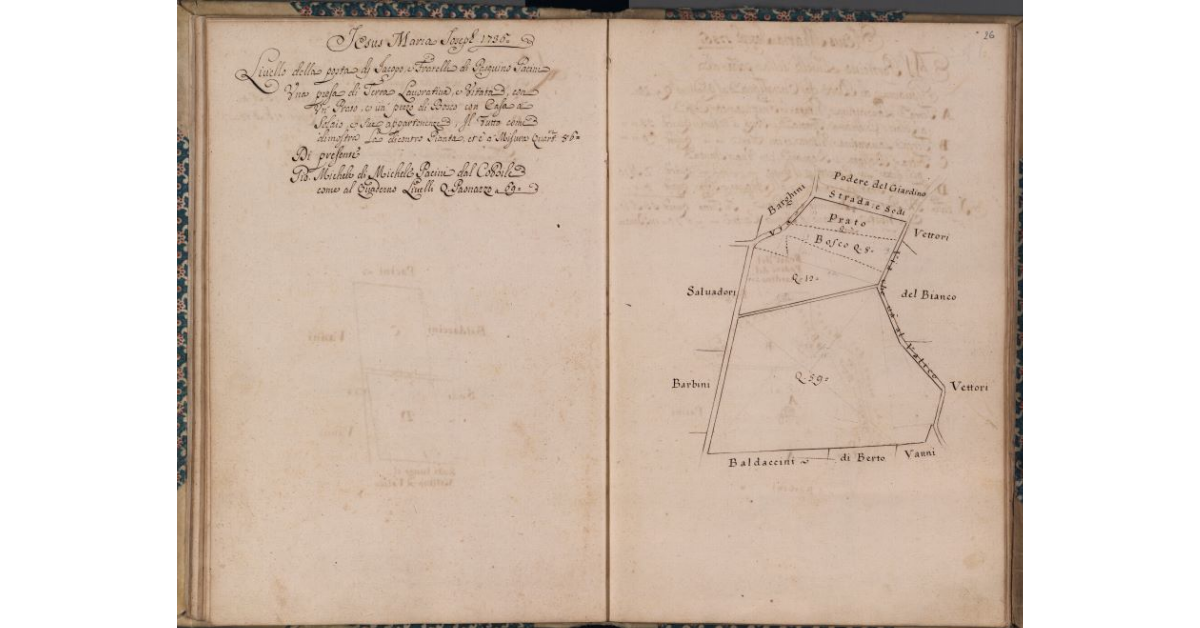 Jesus Maria Joseph 1736
Livello della posta di Jacopo, e Fratelli di Pasquino Pacini
Una presa di Terra Lavorativa, e Vitata, con
Un Prato, e un pezo di Bosco con Casa a
Solaio, e sue appartenenze, Il Tutto come
dimostra La dicontro Pianta, et è a Misura Quart.
Di presente
Gio. Michele di Michele Pacini dal
come al Livelli Q Paonazzo a 69
26
Podere del Giardino
Strada e Sodi
Barghini
Via
Prato
Vettori
Bosco Q. 8
Q. 12
Salvadori
del Bianco
Via che và al
Q. 59
Barbini
Vettori
Baldaccini
di Berto
Vanni